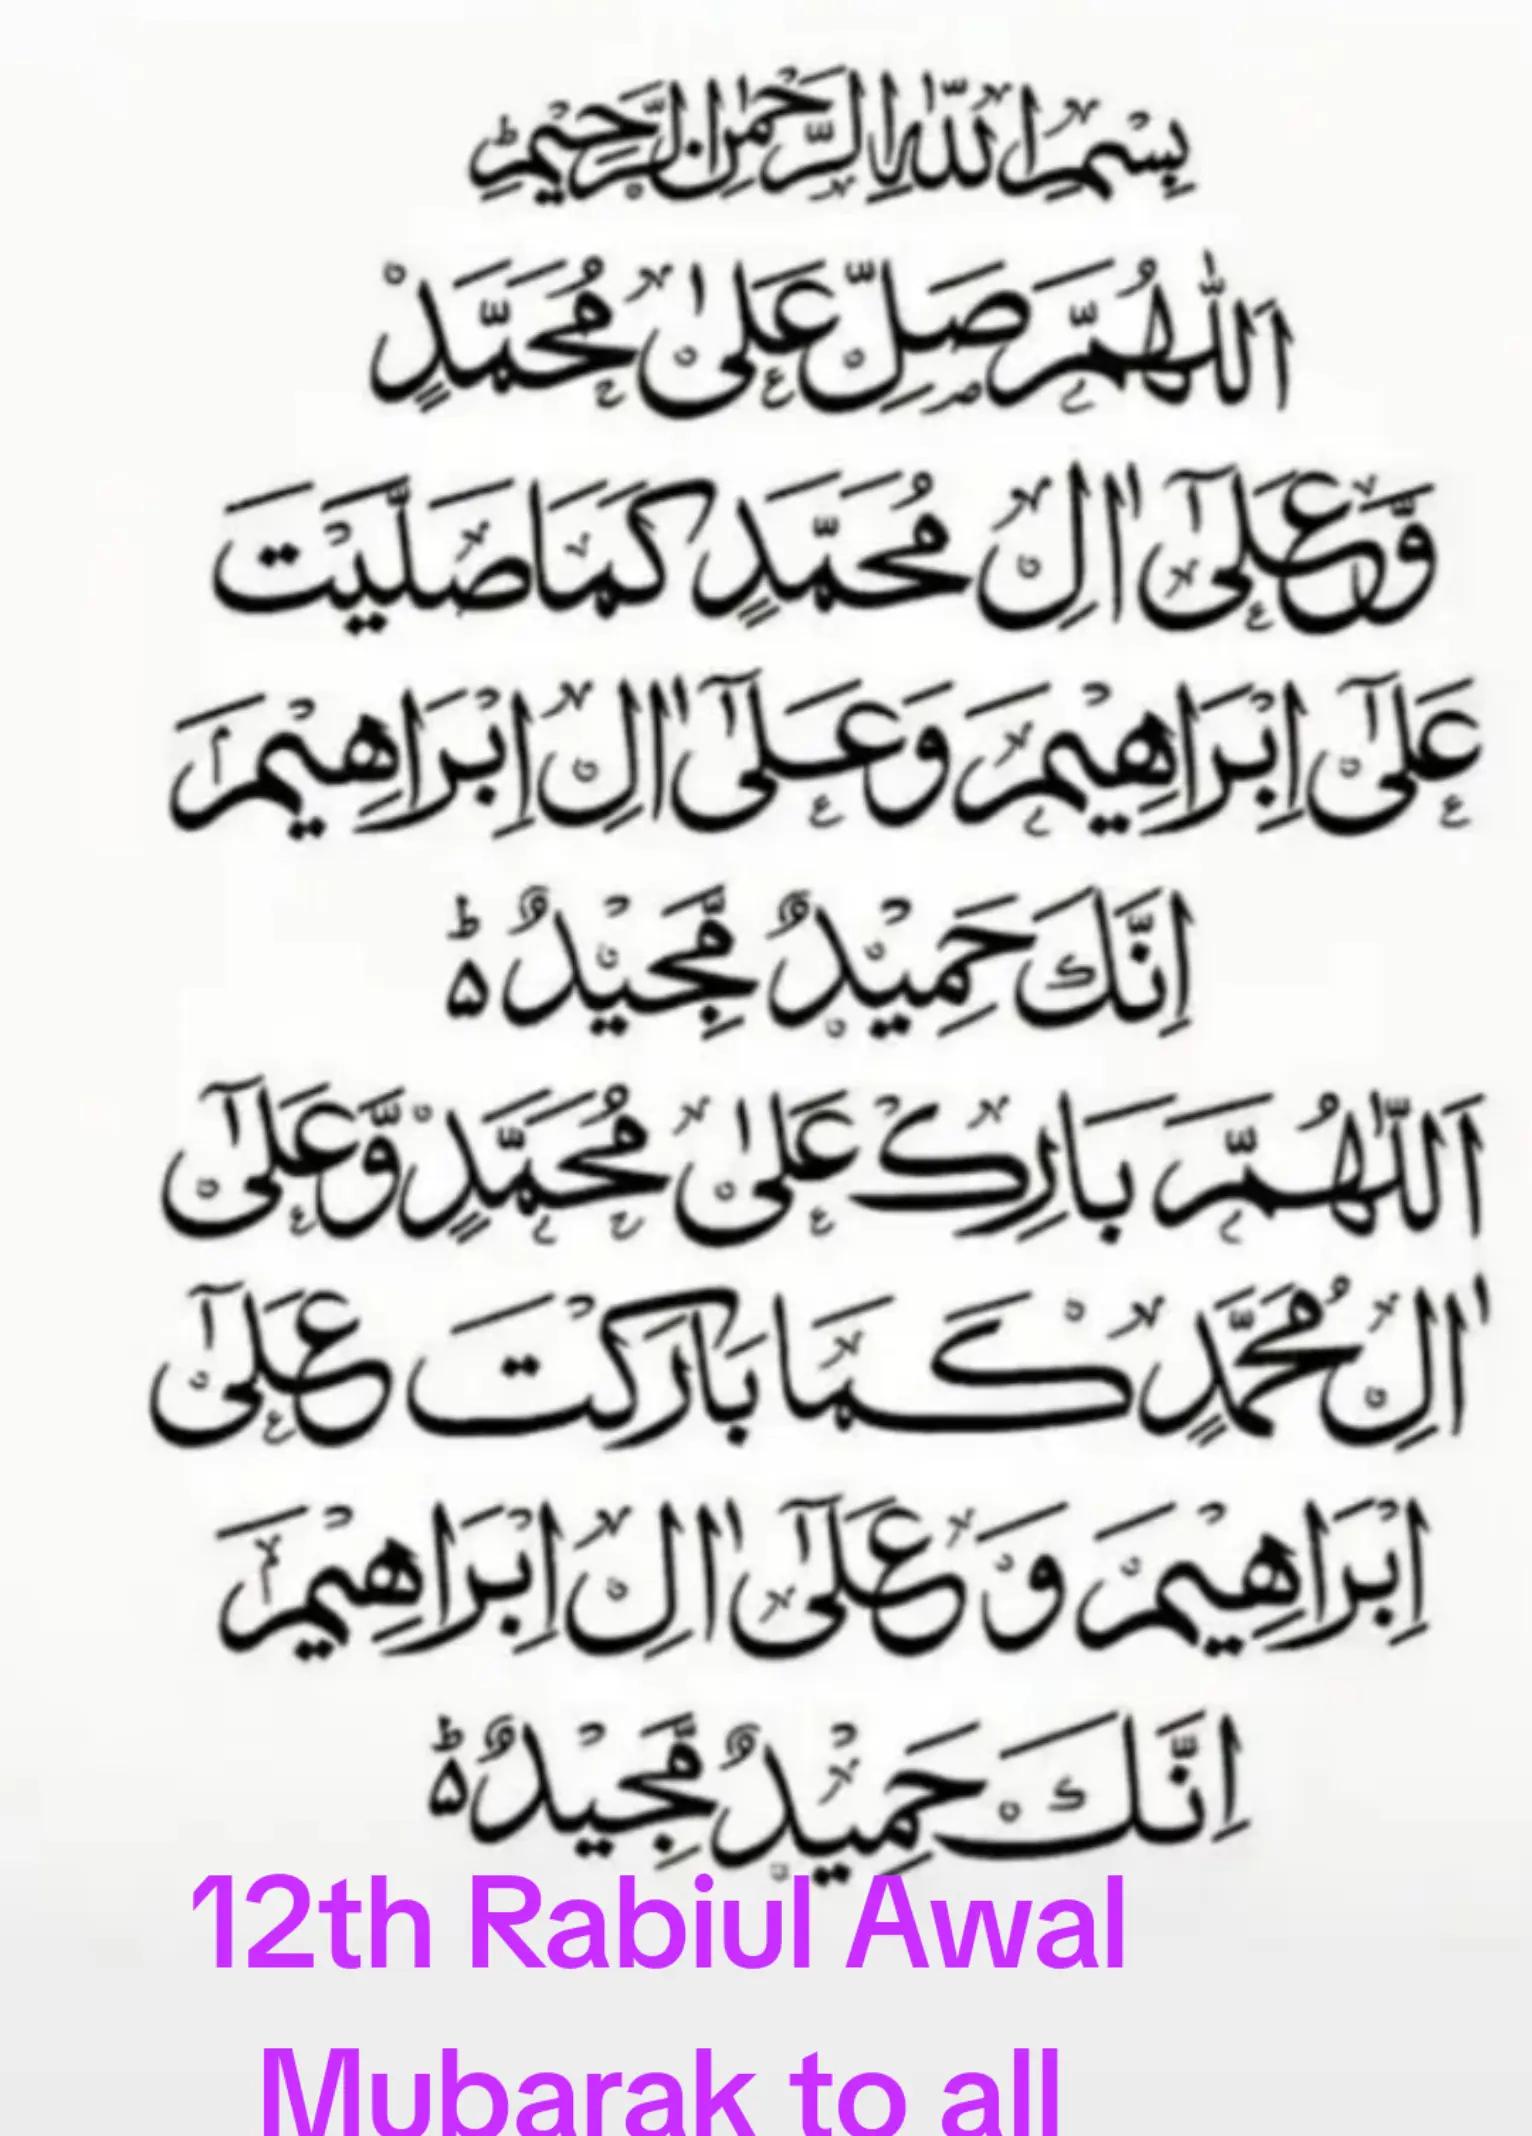 بِسْمِ اللهِ الرَّحْمٰنِ الرَّحِيْمِؕ
اَللّٰهُمَّ صَلِّ عَلٰى مُحَمَّدٍ
وَّعَلٰٓى اٰلِ مُحَمَّدٍ كَمَا صَلَّيْتَ
عَلٰٓى اِبْرَاهِيْمَ وَعَلٰٓى اٰلِ اِبْرَاهِيْمَ
اِنَّكَ حَمِيْدٌ مَّجِيْدٌ ۵ؕ
اَللّٰهُمَّ بَارِكْ عَلٰى مُحَمَّدٍ وَّعَلٰٓى
اٰلِ مُحَمَّدٍ كَمَا بَارَكْتَ عَلٰٓى
اِبْرَاهِيْمَ وَعَلٰٓى اٰلِ اِبْرَاهِيْمَ
اِنَّكَ حَمِيْدٌ مَّجِيْدٌ ۵ؕ
12th Rabiul Awal
Mubarak to all